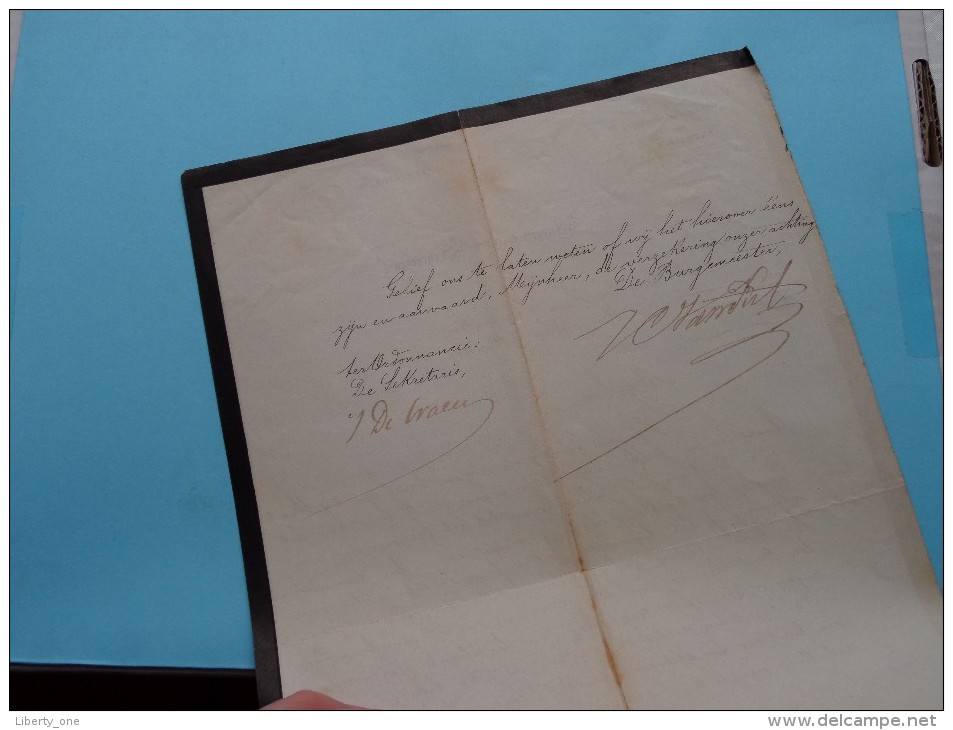 Gelief ons te laten weten of wij het hierover ééns
zijn en aanvaard, Meijnheer, de verzekering onzer achting
De Burgemeester,
ter Ordonnancie:
De Sekretaris,
J De
Liberty_one
www.delcampe.net